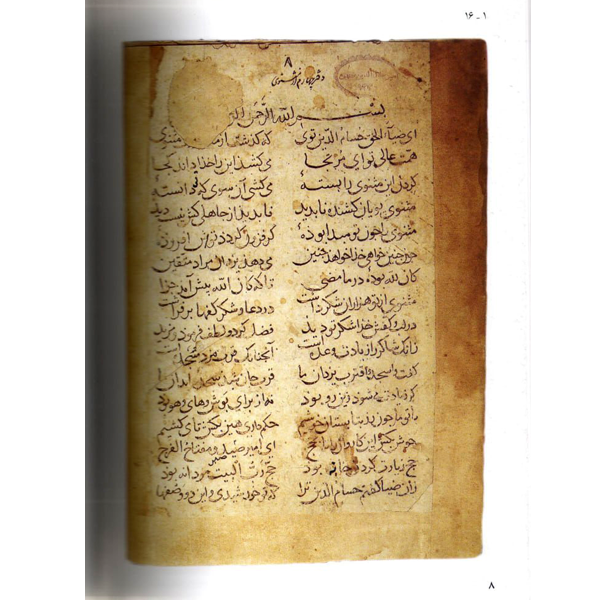 ۱ ـ ۱۶
۸
دفتر چهارم از مثنوی
بسم الله الرحمن
ای ضیاء الحق حسام الدین توی که گذشت از مثنوی
همت عالی تو ای مرتجا می کشد این را خدا داند کجا
گردن این مثنوی را بستهٔ می کشی آن سوی که دانستهٔ
مثنوی پویان کشنده ناپدید ناپدید از جاهلی کش نیست دید
مثنوی را چون تو مبدا بودهٔ گر فزون گردد توش افزودهٔ
چون چنین خواهی خدا خواهد چنین می دهد یزدان مراد متقین
کان لله بودهٔ در ما مضی تا که کان الله پیش آمد جزا
مثنوی از تو هزاران شکر داشت در دعا و شکر کفها بر فراشت
در لب و کفش خدا شکر تو دید فضل کرد و لطف فرمود و مزید
زانک شاکر را زیادت وعده است آنچنانک قرب مزد سجده است
گفت واسجد واقترب یزدان ما قرب جان شد سجده ابدان ما
گر زیادت می شود زین رو بود نه از برای بوش و های و هو بود
با تو ما چون رز بتابستان خوشیم حکم داری هین بکش تا می کشیم
خوش بکش این کاروان را تا بحج ای امیر صبر مفتاح الفرج
حج زیارت کردن خانه بود حج رب البیت مردانه بود
زان ضیا گفتم حسام الدین ترا که تو خورشیدی و این دو وصفها
۸